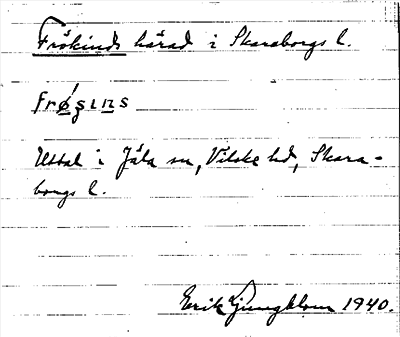 Frökinds härad i Skaraborgs l.
frǿ̱s̨ɩṉs
Uttal i Jäla sn, Vilske hd, Skara-
borgs l.
Erik Ljungblom 1940.